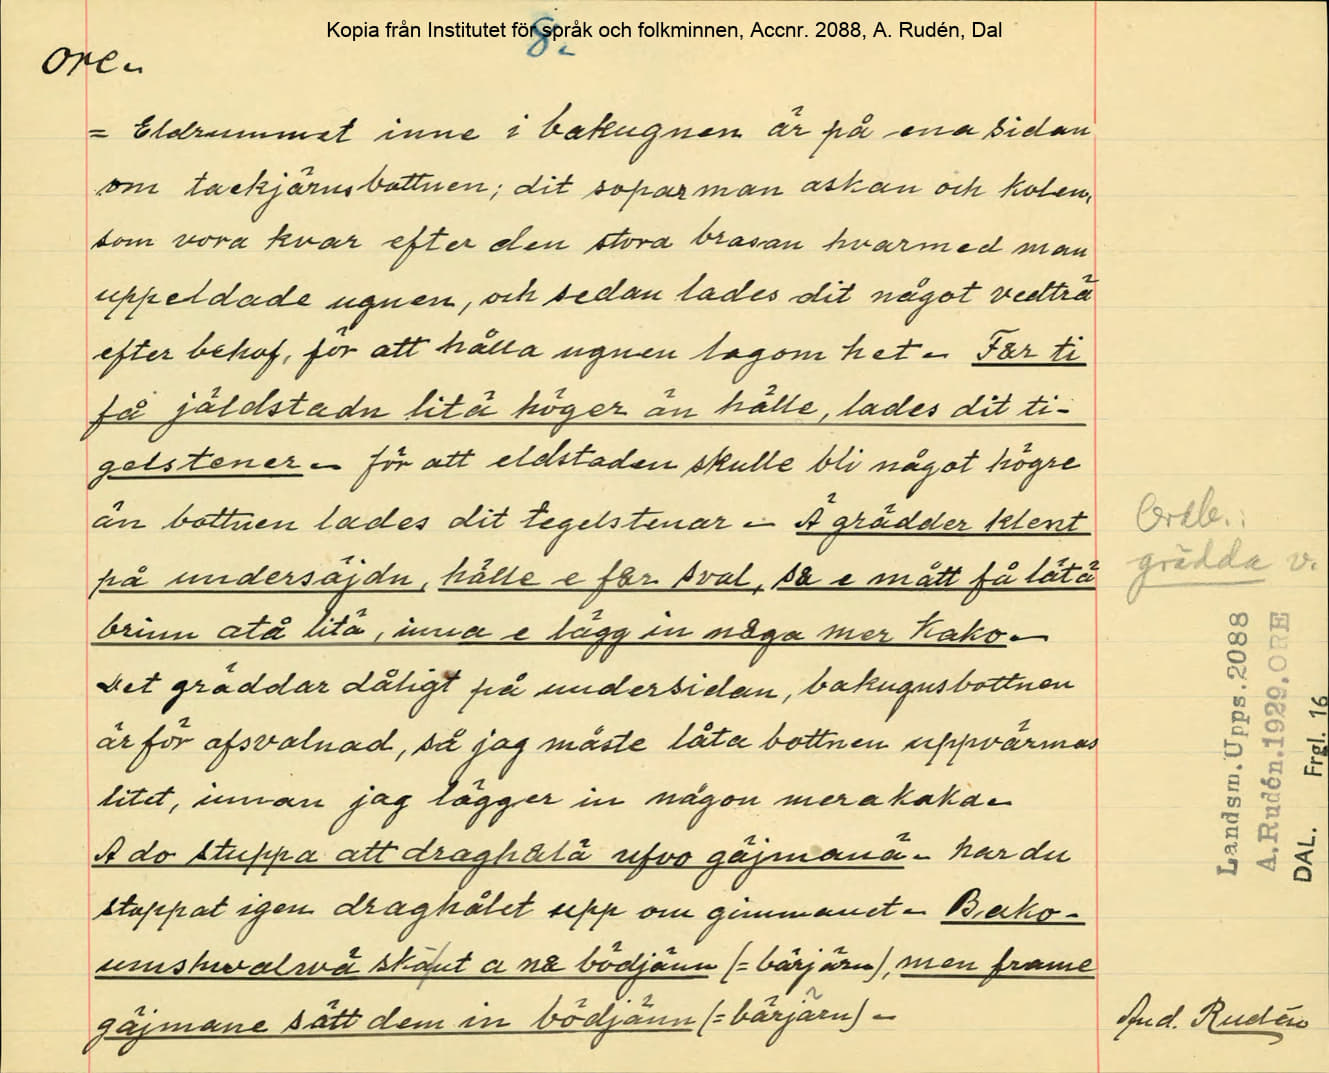 Kopia från Institutet för språk och folkminnen, Accnr. 2088, A. Rudén, Dal
8.
Ore.
= Eldrummet inne i bakugnen är på ena sidan
om tackjärnsbottnen; dit sopar man askan och kolen,
som vora kvar efter den stora brasan hvarmed man
uppeldade ugnen, och sedan lades dit något vedträ
efter behof, för att hålla ugnen lagom het. Fær ti
få jäldstadn litä höger än hälle, lades dit ti-
gelstener. för att eldstaden skulle bli något högre
än bottnen lades dit tegelstenar. Ä grädder klent
på undersäjdn, hälle e fær sval, sæ e mått få låtä
brinn atå litä, inna e lägg in næga mer kako.
Det gräddar dåligt på undersidan, bakugnsbottnen
är för afsvalnad, så jag måste låta bottnen uppvärmas
litet, innan jag lägger in någon mera kaka.
A do stuppa att draghælä ufvo gäjmanä. har du
stoppat igen draghålet upp om gimmanet. Bako-
umshvalvä skäut a næ bödjänn (= bärjärn), men frame
gäjmane sätt dem in bödjänn (= bärjärn).
Ordb.:
grädda v.
Landsm. Upps. 2088
A. Rudén. 1929. ORE
DAL. Frgl. 16
And. Rudén